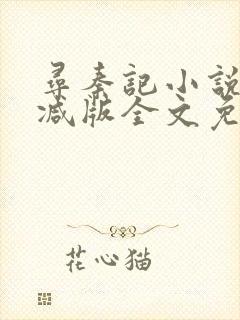 尋秦記小説
减版全文免
花心猫